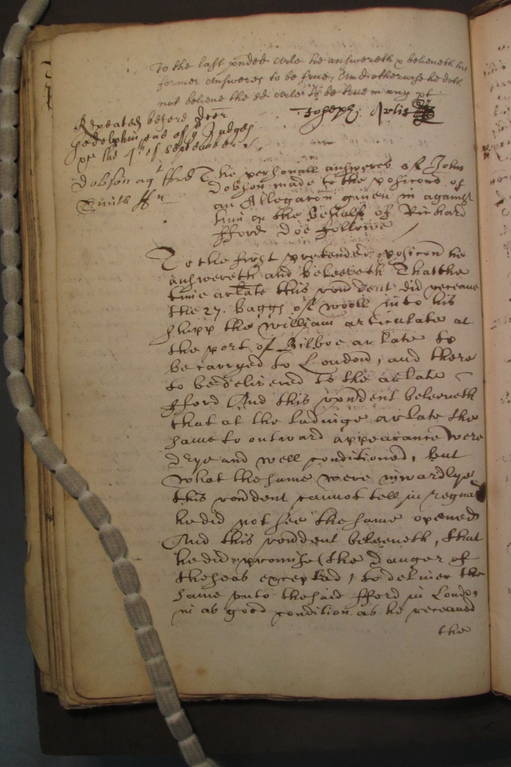 To the last pnded Arle he answereth & beleeveth his
former answeres to be true, And otherwise he doth
not beleeve the sd Arle to be true in any pt
Joseph Arlis
Repeated before Doer
Godolphin one of the Judges
on the 4th of September
Dobson agt fford
Smith
The personall answeres of John
Dobson made to the posicons of
an Allegation given in against
him on the behalfe of Richard
fford doe followe
To the first pretended posicon he
answereth and beleeveth That the
time arlate this rondent did receave
the 27. baggs of wooll into his
shipp the William articulate at
the port of Bilboe arlate to
be carryed to London, and there
to be delivered to the arlate
fford And this rondent beleeveth
that at the ladinge arlate the
same to outward appearance were
drye and well conditioned, but
what the same were inwardlye
this rondent cannot tell in regard
he did not see the same opened
And this rondent beleeveth, that
he did promise (the danger of
the seas excepted) to deliver the
same unto the said fford in London
in as good condition as he receaved
the